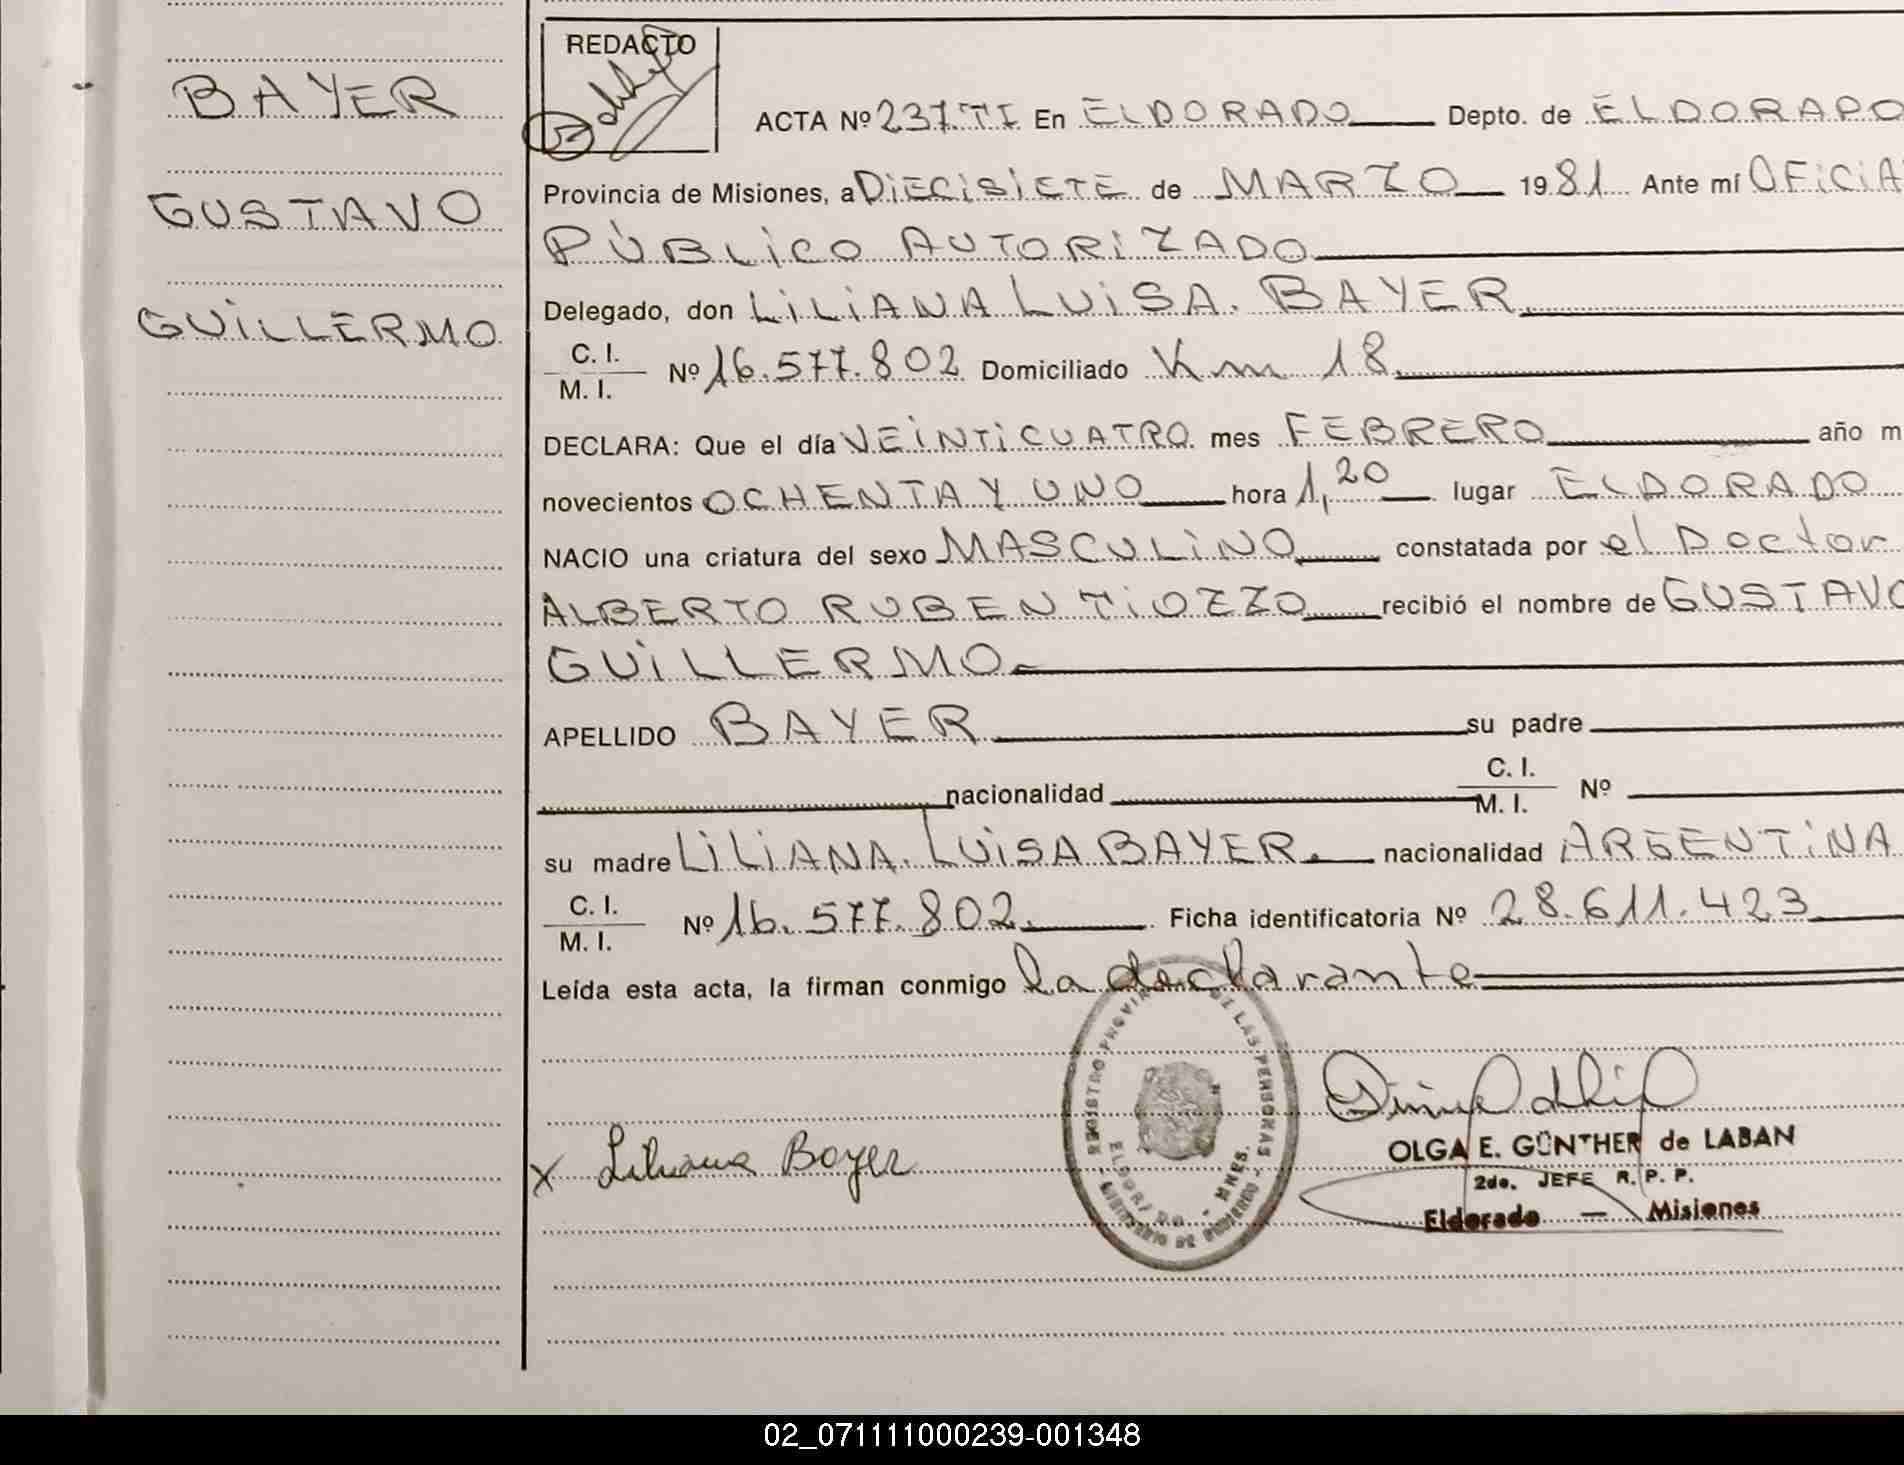 BAYER
GUSTAVO
GUILLERMO
REDACTO
ACTA Nº 237.TI En ELDORADO Depto. de ELDORADO
Provincia de Misiones, a DIECISIETE de MARZO 1981 Ante mí OFICIA
PÚBLICO AUTORIZADO
Delegado, don LILIANA LUISA. BAYER
C. I.
M. I. Nº 16.577.802 Domiciliado Km 18
DECLARA: Que el día VEINTICUATRO mes FEBRERO año m
novecientos OCHENTA Y UNO hora 1,20 lugar ELDORADO
NACIO una criatura del sexo MASCULINO constatada por el Doctor
ALBERTO RUBEN TIOZZO recibió el nombre de GUSTAVO
GUILLERMO
APELLIDO BAYER su padre
nacionalidad C. I.
M. I. Nº
su madre LILIANA. LUISA BAYER. nacionalidad ARGENTINA
C. I.
M. I. Nº 16.577.802. Ficha identificatoria Nº 28.611.423
Leída esta acta, la firman conmigo la declarante
REGISTRO PROVINCIAL DE LAS PERSONAS
MINISTERIO DE GOBIERNO
ELDORADO - MNES.
X Liliana Bayer
OLGA E. GÜNTHER de LABAN
2do. JEFE R. P. P.
Eldorado — Misiones
02_071111000239-001348